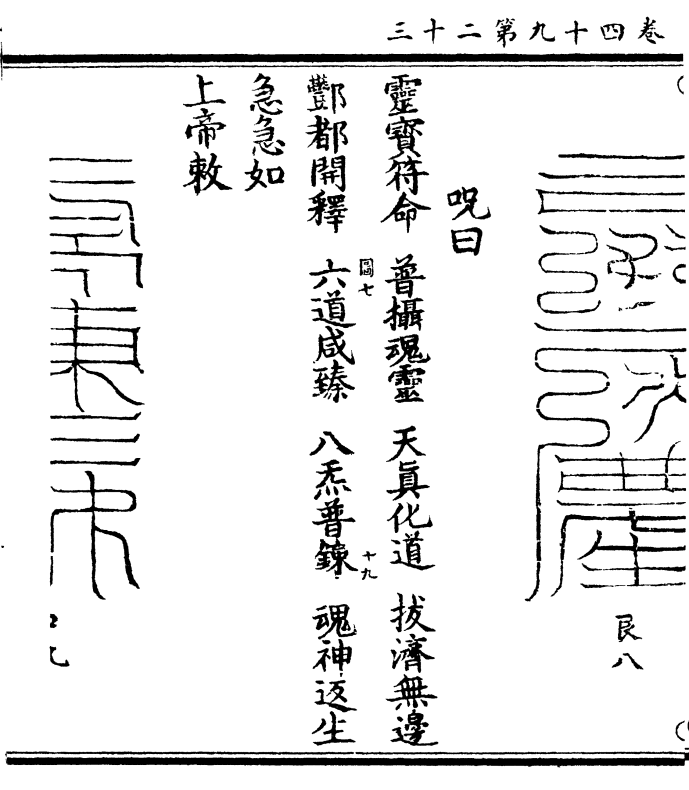 卷四十九第二十三
艮八
呪曰
靈寶符命 普攝魂靈 天眞化道 拔濟無邊
圖七
十九
酆都開釋 六道咸臻 八炁普鍊 魂神返生
急急如
上帝敕